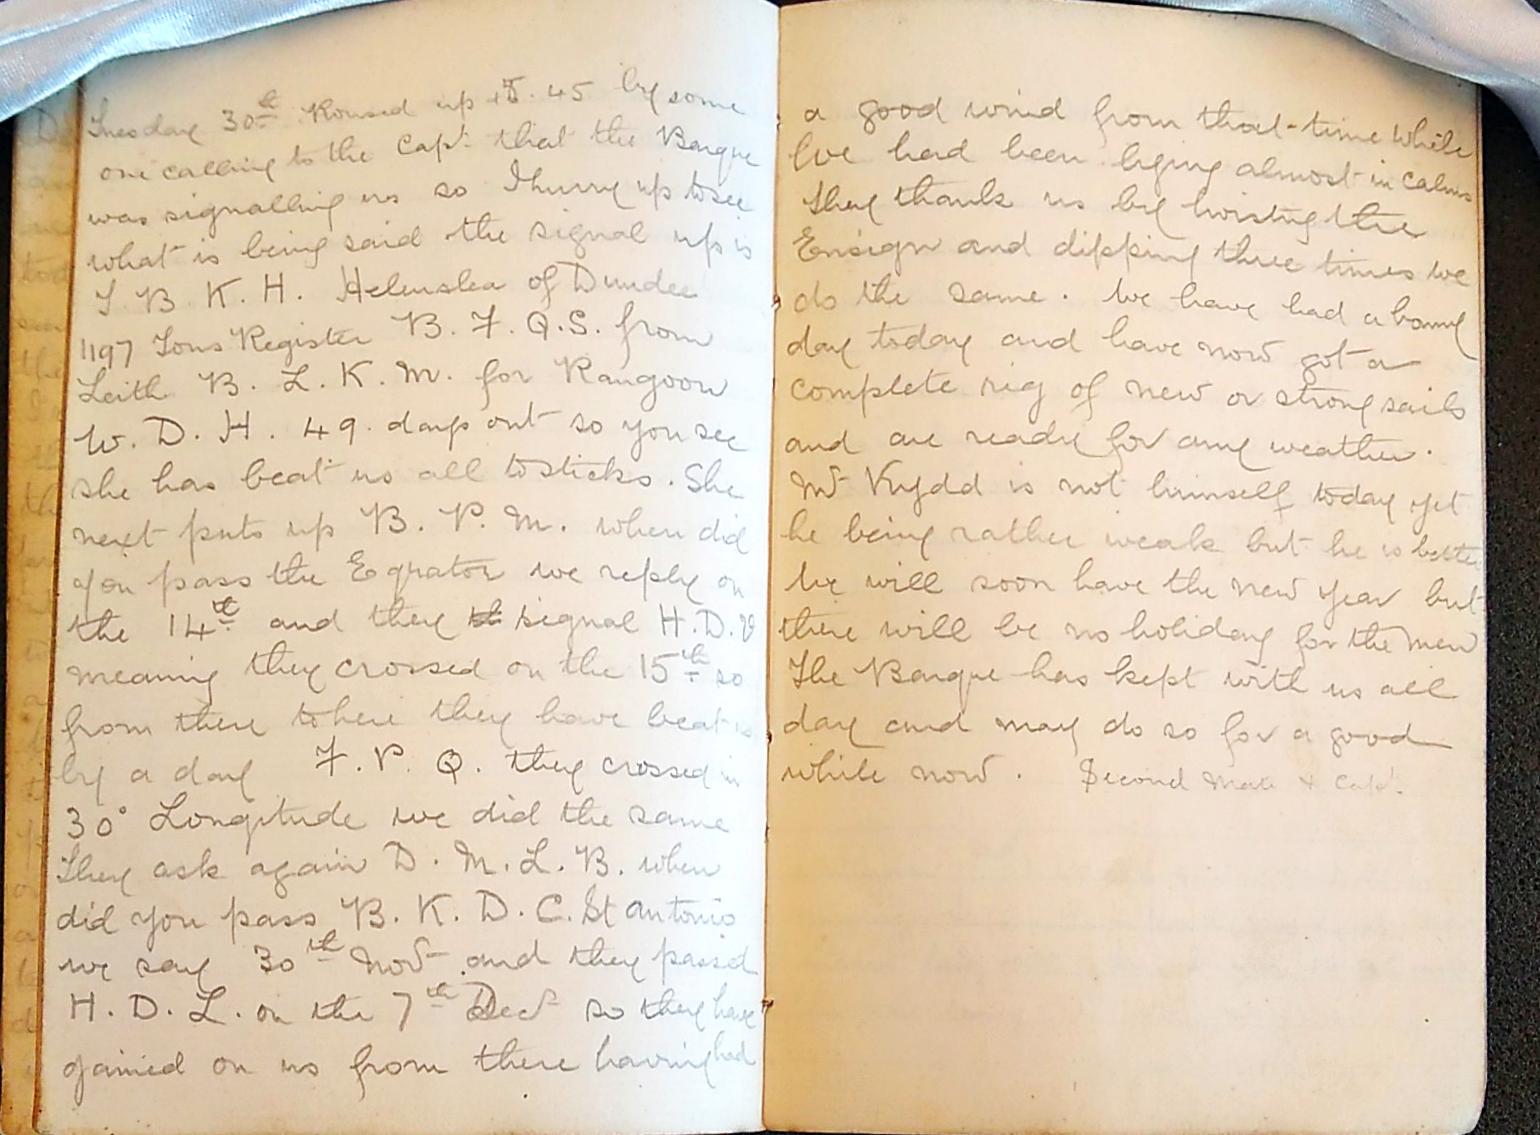 Tuesday 30th Roused up 5.45 by some
one calling to the Capt. that the Barque
was signalling us so I hurry up to see
what is being said the signal up is
J B. K. H. Helenslea of Dundee
1197 Tons Register B. F. Q. S. from
Leith B. L. K. M. for Rangoon
W. D. H. 49. days out so you see
she has beat us all to sticks. She
next puts up B. P. M. when did
you pass the Eqrator we reply on
the 14th and they signal H. D. V
meaning they crossed on the 15th so
from there to here they have beat us
by a day F. P. Q. they crossed in
30° Longitude we did the same
They ask again D. M. L. B. when
did you pass B. K. D. C. St Antonio
we say 30th Nov and they passed
H. D. L. on the 7th Dec so they have
gained on us from there having had
a good wind from that-time while
We had been lying almost in calms
they thank us by hoisting the
Ensign and dipping three times we
do the same. We have had a bonny
day today and have now got a
complete rig of new or strong sails
and are ready for any weather.
Mr Kydd is not himself today yet
he being rather weak but he is better
We will soon have the new year but
there will be no holiday for the men
The Barque has kept with us all
day and may do so for a good
while now. Second Mate & Capt.